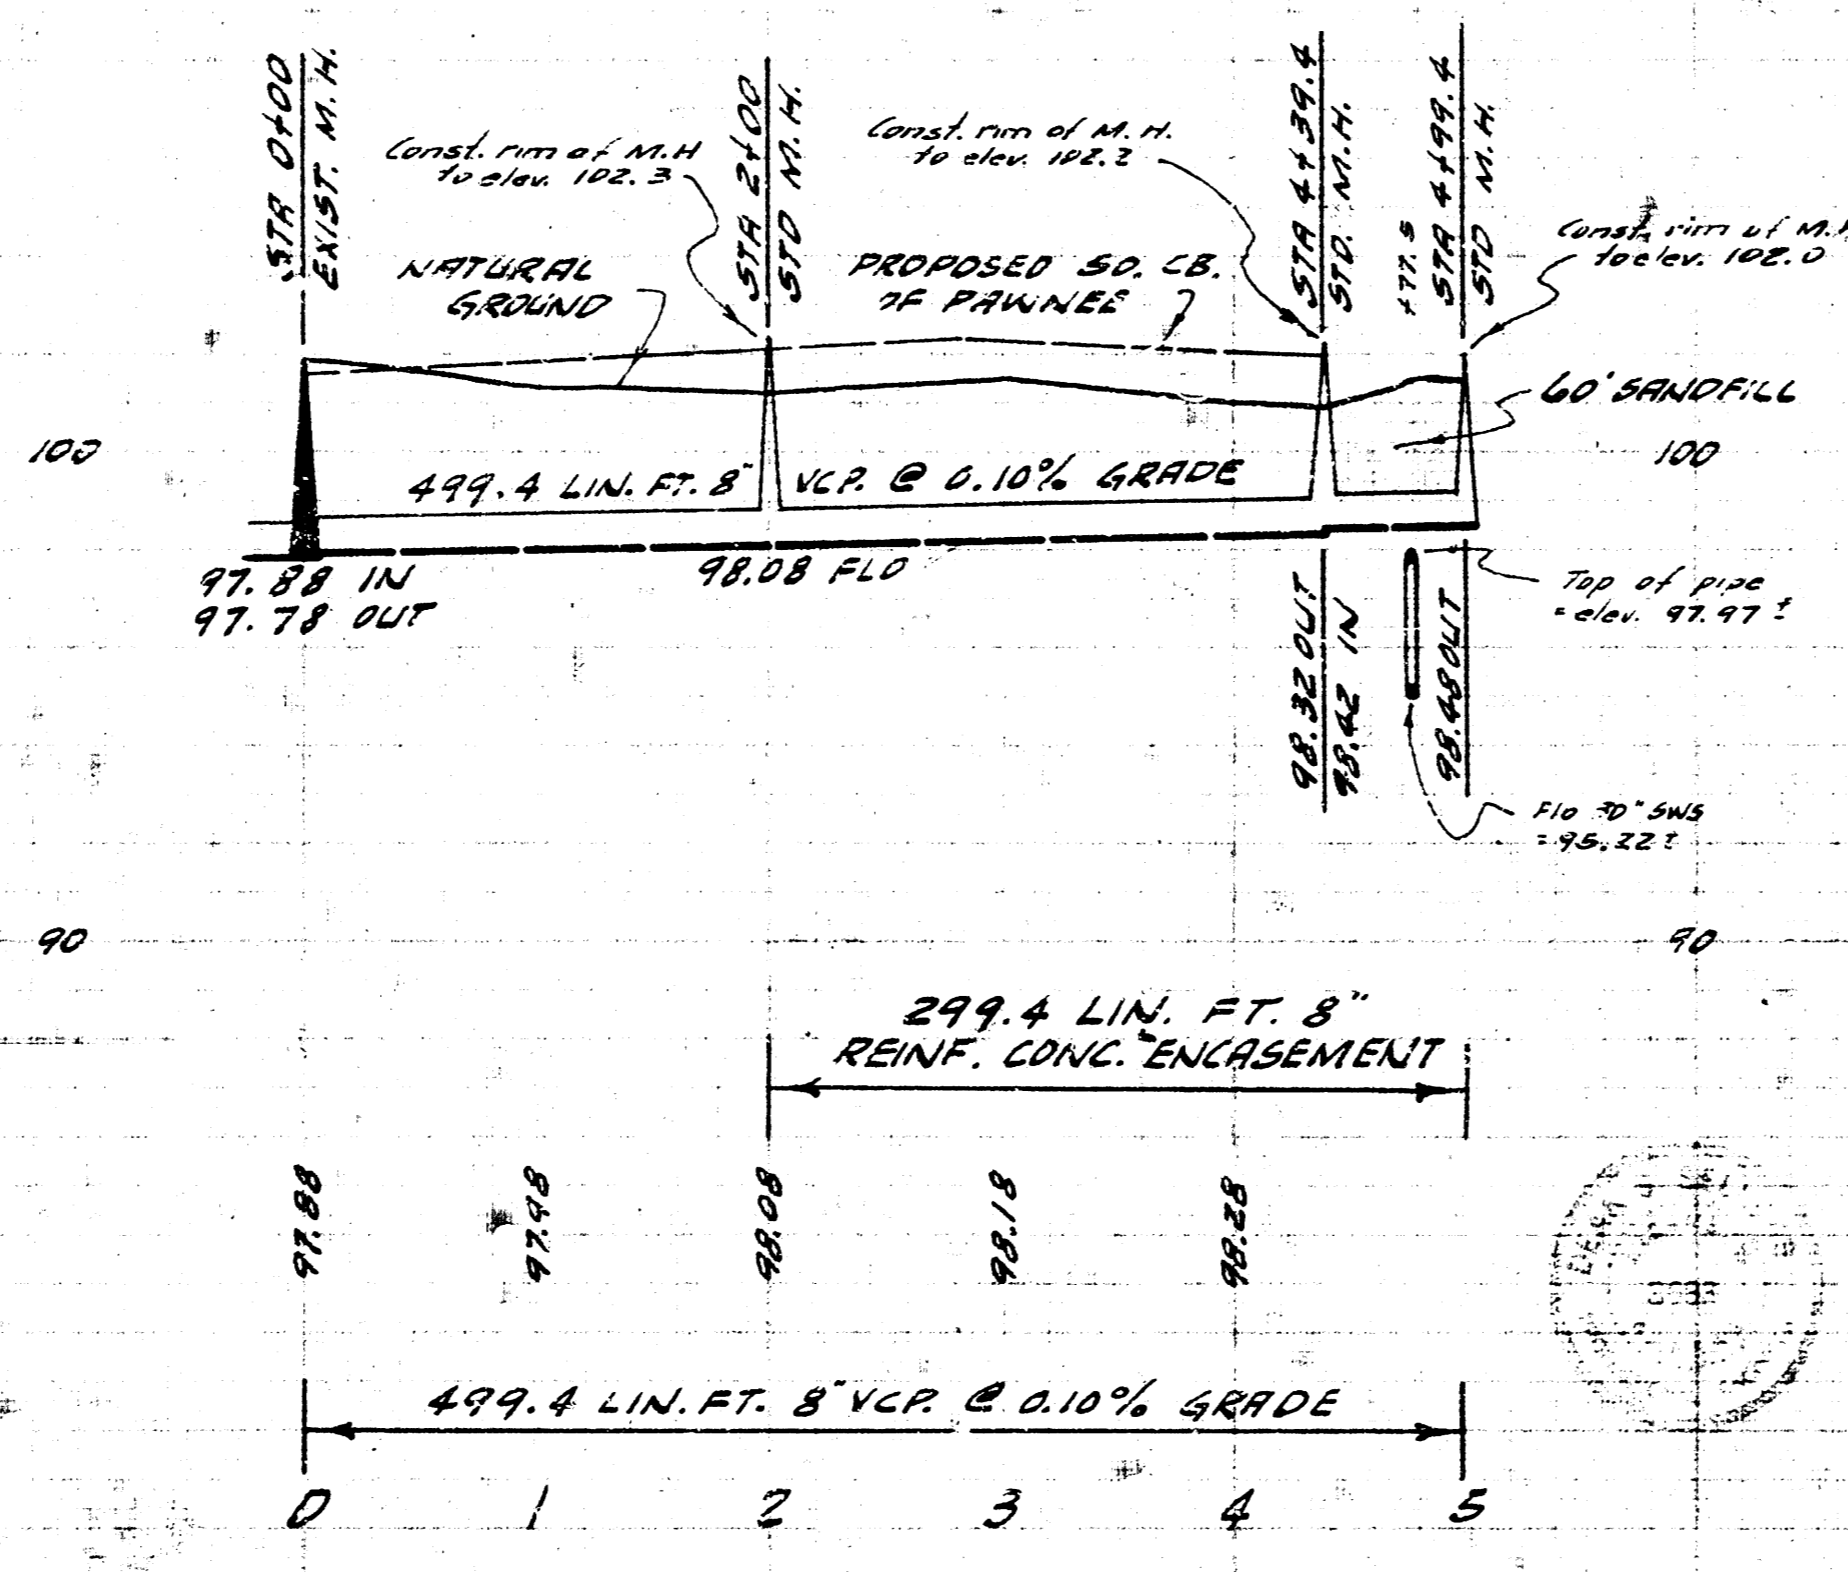 STA 0+00
EXIST. M.H.
Const. rim of M.H
to elev. 102.3
STA 2+00
STD M.H.
Const. rim of M.H.
to elev. 102.2
STA 4+39.4
STD. M.H.
+77.5
STA 4+99.4
STD M.H.
Const. rim of M.H
to elev. 102.0
NATURAL
GROUND
PROPOSED SO. CB.
OF PAWNEE
60' SANDFILL
100
100
499.4 LIN. FT. 8" VCP. @ 0.10% GRADE
97.88 IN
97.78 OUT
98.08 FLO
98.32 OUT
98.42 IN
98.48 OUT
Top of pipe
= elev. 97.97 ±
Flo 30" SWS
= 95.22 ±
90
90
299.4 LIN. FT. 8"
REINF. CONC. ENCASEMENT
97.88
97.98
98.08
98.18
98.28
499.4 LIN. FT. 8" VCP. @ 0.10% GRADE
0 1 2 3 4 5